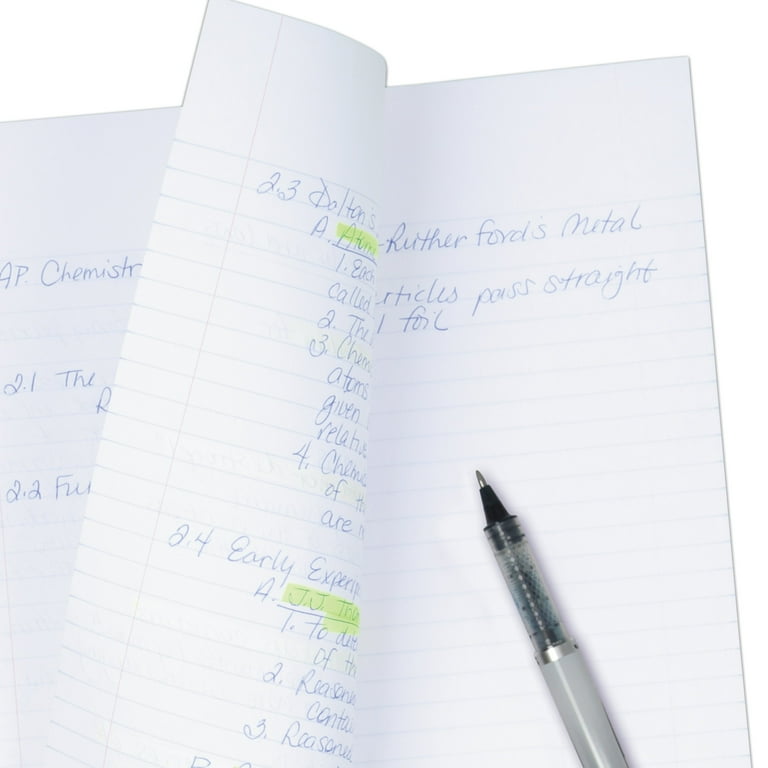 AP. Chemistr
2.1 The
R
2.2 Fu
2.3 Dalton's
A. Atom
1. Each
called
2. The
3. Chem
atoms
given
relativ
4. Chemic
of th
are r
2.4 Early Experi
A. J.J. Tho
1. To dete
of th
2. Reasone
contai
3. Reasoned
B.
-Rutherford's Metal
rticles pass straight
l foil